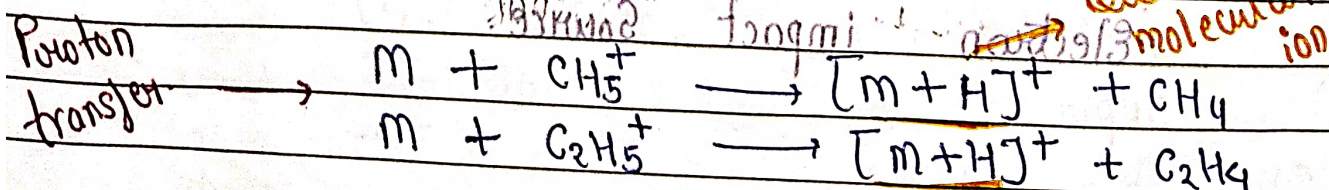 molecular ion
Proton transfer → M + CH5+ → [M+H]+ + CH4
M + C2H5+ → [M+H]+ + C2H4